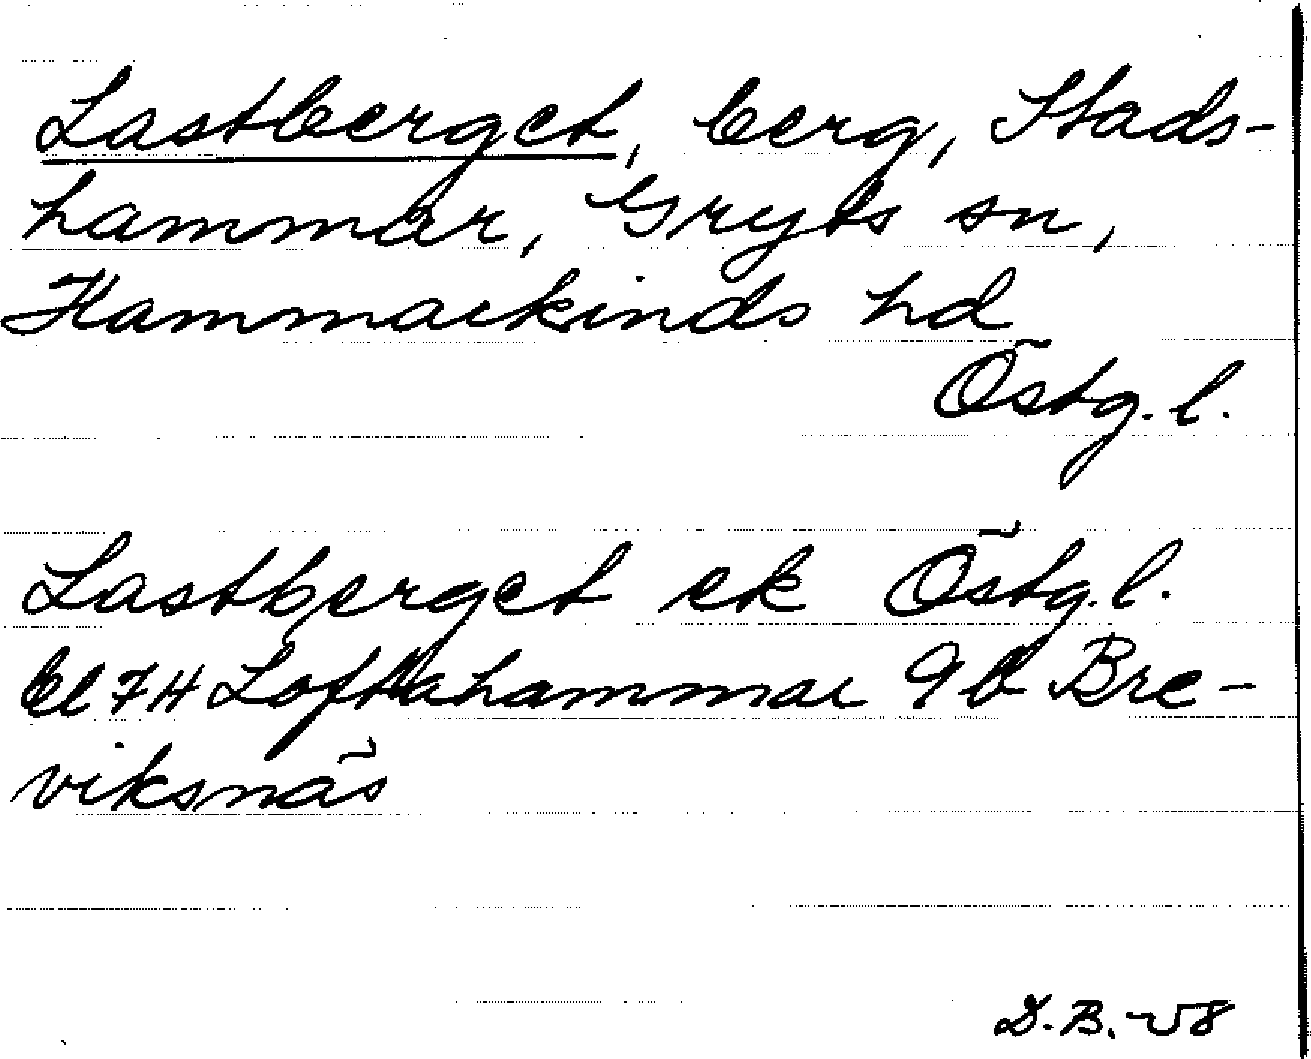 Lastberget, berg, Stads-
hammar, Gryts sn,
Hammarkinds hd
Östg. l.
Lastberget ek Östg. l.
Bl 7H Loftahammar 9b Bre-
viksnäs
D.B. -58